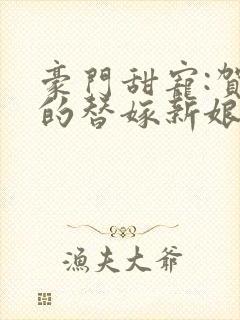 豪門甜寵:賀
的替嫁新娘
漁夫大爺